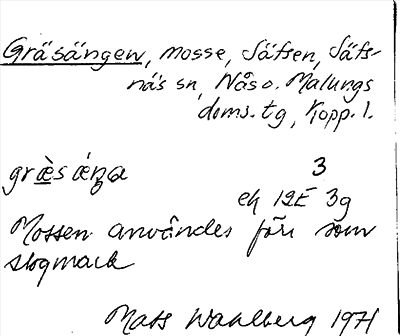 Gräsängen, mosse, Säfsen, Säfs-
näs sn, Nås o. Malungs
doms. tg, Kopp. l.
græ̀s ǽŋa 3
ek 12E 3g
Mossen användes förr som
slogmark
Mats Wahlberg 1971